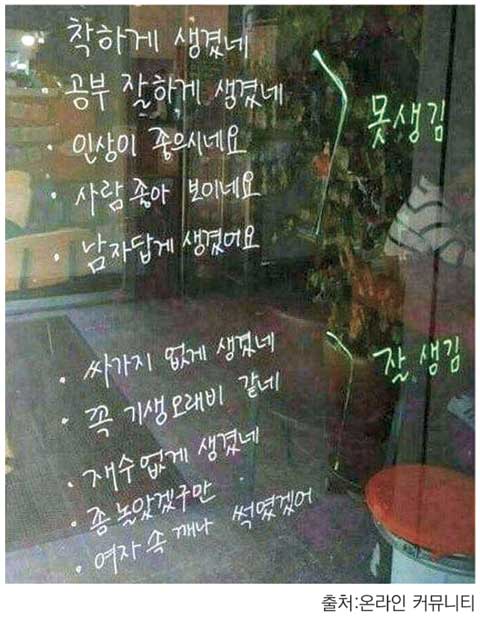 착하게 생겼네
· 공부 잘하게 생겼네
· 인상이 좋으시네요
· 사람 좋아 보이네요
· 남자답게 생겼어요
못생김
· 싸가지 없게 생겼네
· 꼭 기생오래비 같네
· 재수없게 생겼네
· 좀 놀았겠구만
· 여자 속 깨나 썩였겠어
잘 생김
출처:온라인 커뮤니티